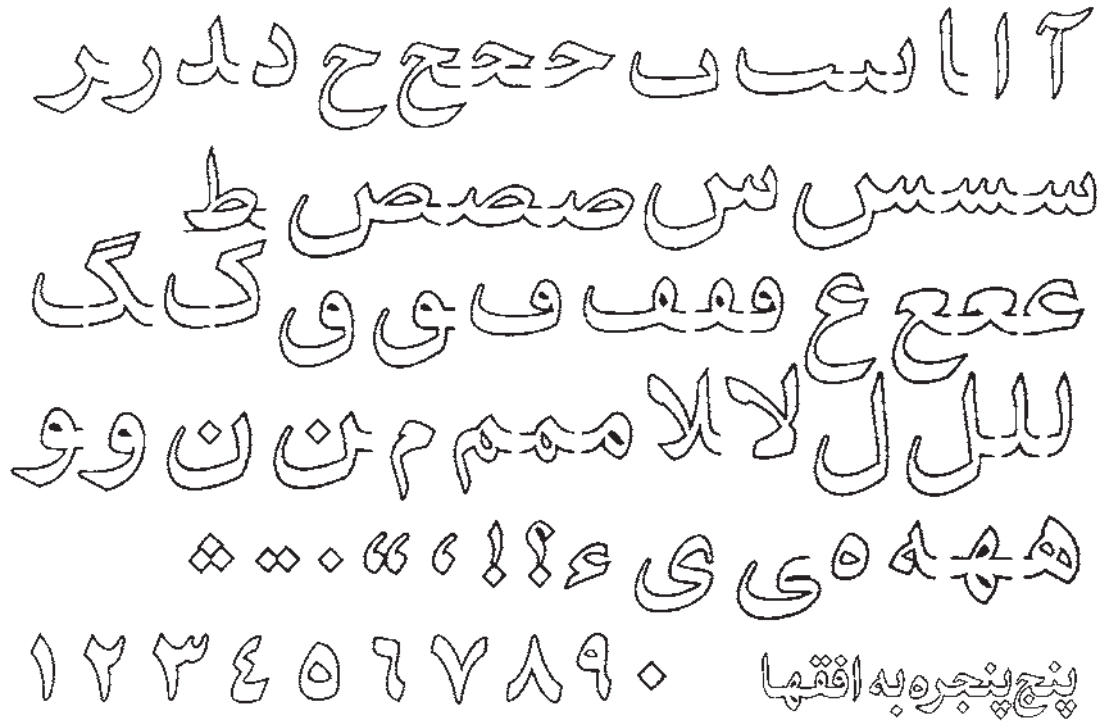 آ ا ا ببب ب ححح ح د د ر ر
سسس س صصص ص ط
ععع ع ففف ف ق ق ک گ
للل ل لا لا ممم م ن ن و و
ههه ه ی ی ء ؟ ! ، “
١ ٢ ٣ ٤ ٥ ٦ ٧ ٨ ٩ ٠
پنج پنجره به افقها